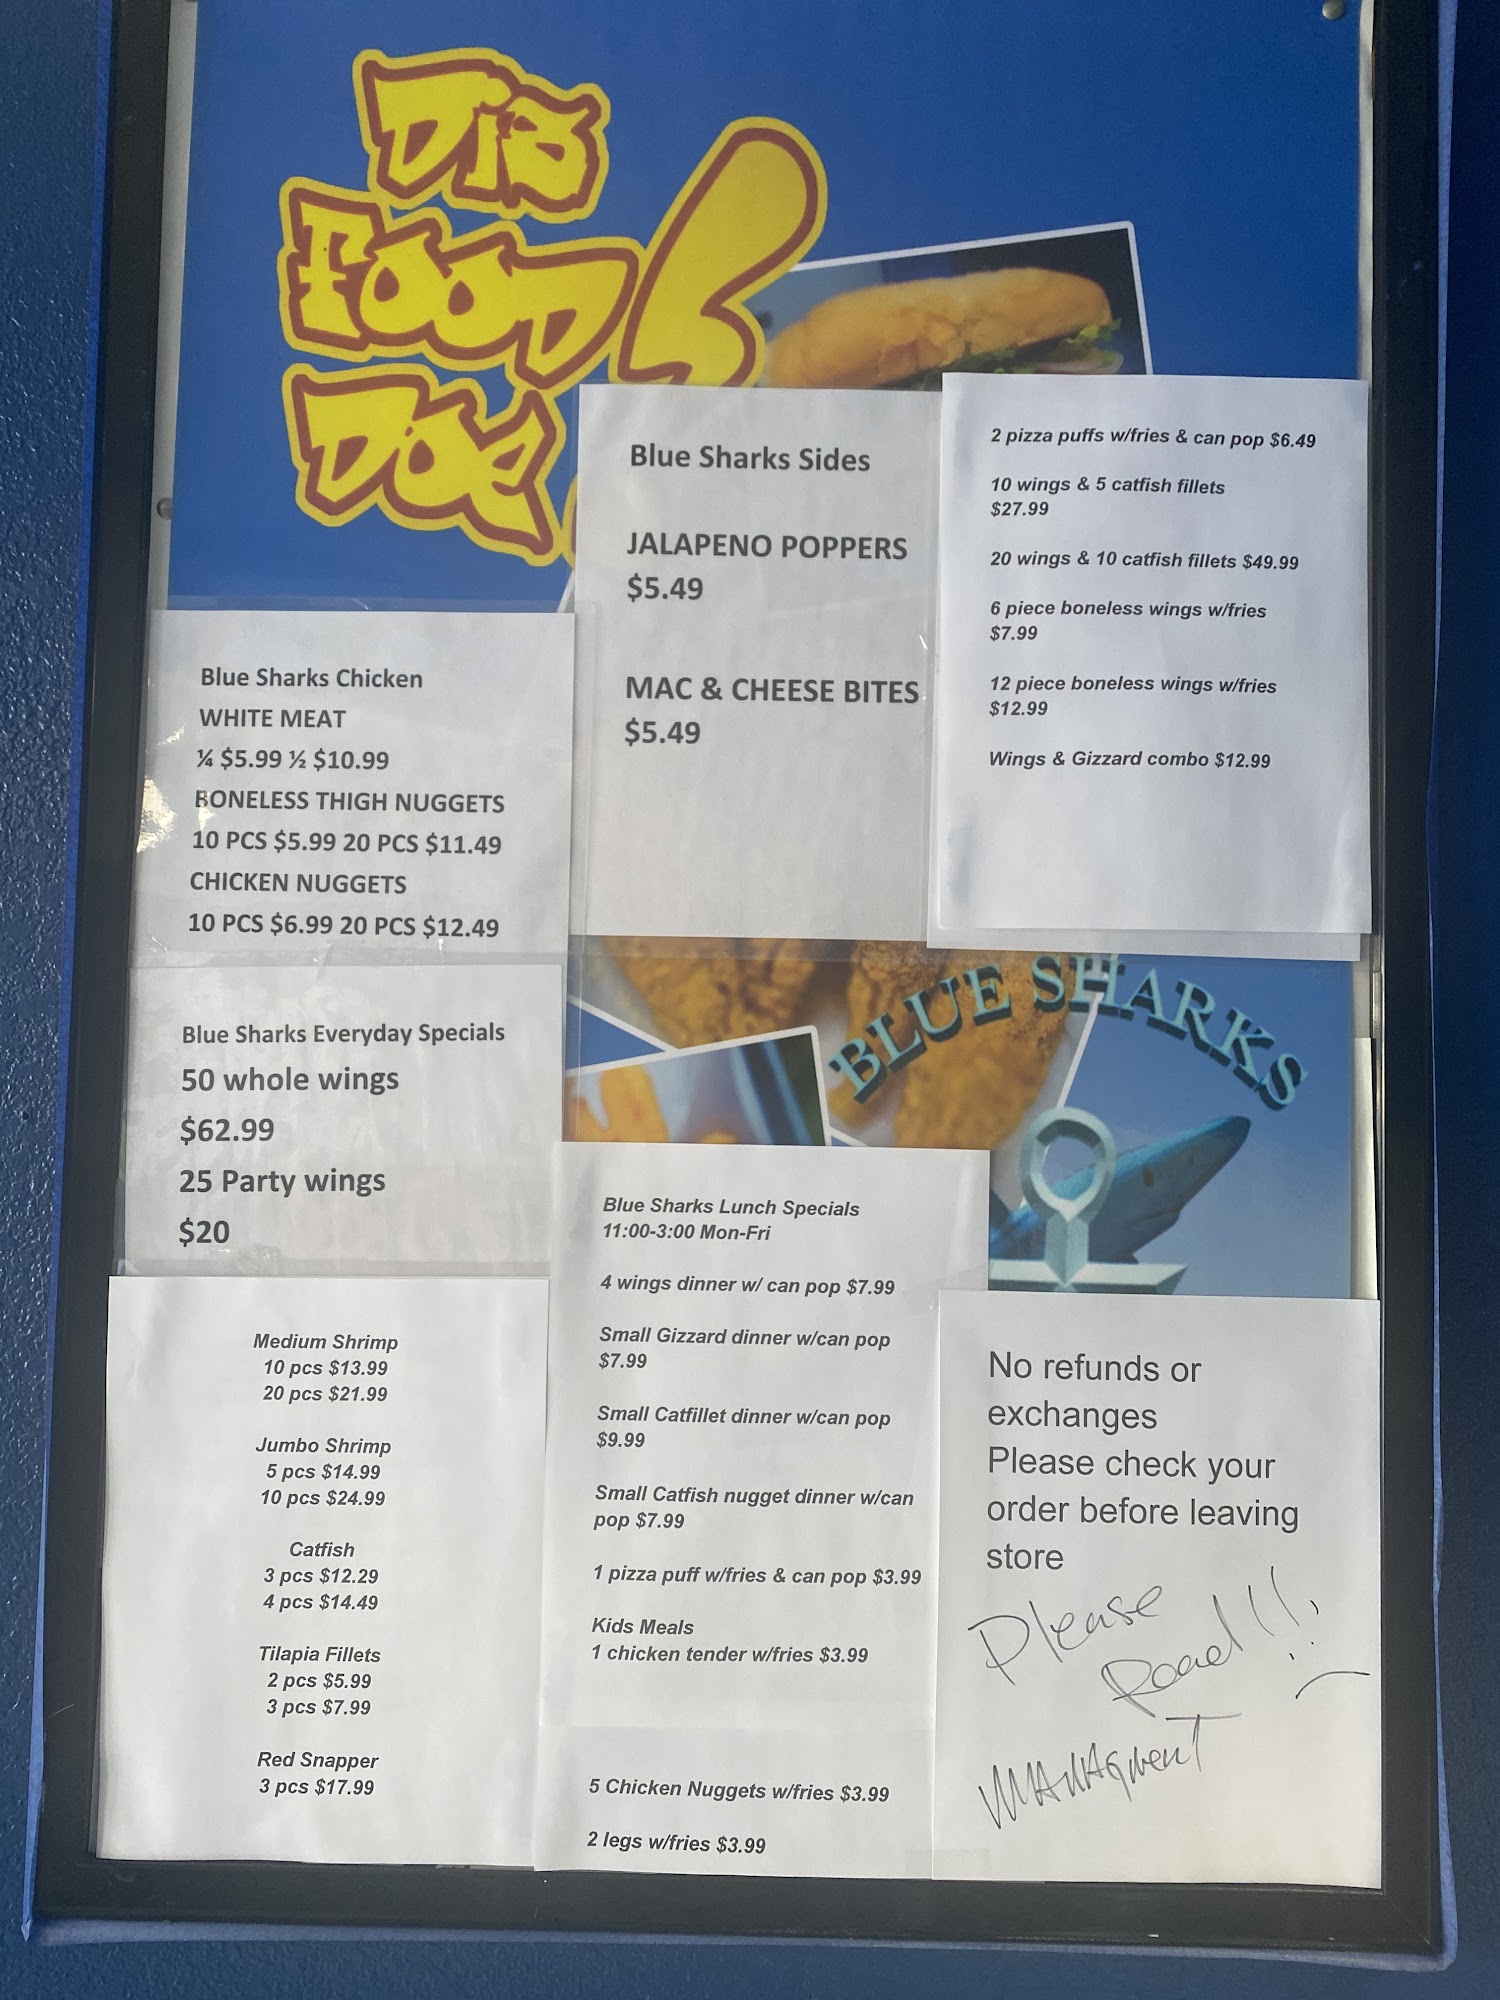 DIS
FOOD
DOE!
Blue Sharks Sides
JALAPENO POPPERS
$5.49
MAC & CHEESE BITES
$5.49
2 pizza puffs w/fries & can pop $6.49
10 wings & 5 catfish fillets
$27.99
20 wings & 10 catfish fillets $49.99
6 piece boneless wings w/fries
$7.99
12 piece boneless wings w/fries
$12.99
Wings & Gizzard combo $12.99
Blue Sharks Chicken
WHITE MEAT
¼ $5.99 ½ $10.99
BONELESS THIGH NUGGETS
10 PCS $5.99 20 PCS $11.49
CHICKEN NUGGETS
10 PCS $6.99 20 PCS $12.49
BLUE SHARKS
Blue Sharks Everyday Specials
50 whole wings
$62.99
25 Party wings
$20
Medium Shrimp
10 pcs $13.99
20 pcs $21.99
Jumbo Shrimp
5 pcs $14.99
10 pcs $24.99
Catfish
3 pcs $12.29
4 pcs $14.49
Tilapia Fillets
2 pcs $5.99
3 pcs $7.99
Red Snapper
3 pcs $17.99
Blue Sharks Lunch Specials
11:00-3:00 Mon-Fri
4 wings dinner w/ can pop $7.99
Small Gizzard dinner w/can pop
$7.99
Small Catfillet dinner w/can pop
$9.99
Small Catfish nugget dinner w/can
pop $7.99
1 pizza puff w/fries & can pop $3.99
Kids Meals
1 chicken tender w/fries $3.99
5 Chicken Nuggets w/fries $3.99
2 legs w/fries $3.99
No refunds or
exchanges
Please check your
order before leaving
store
Please
Read!!
MANAgmenT